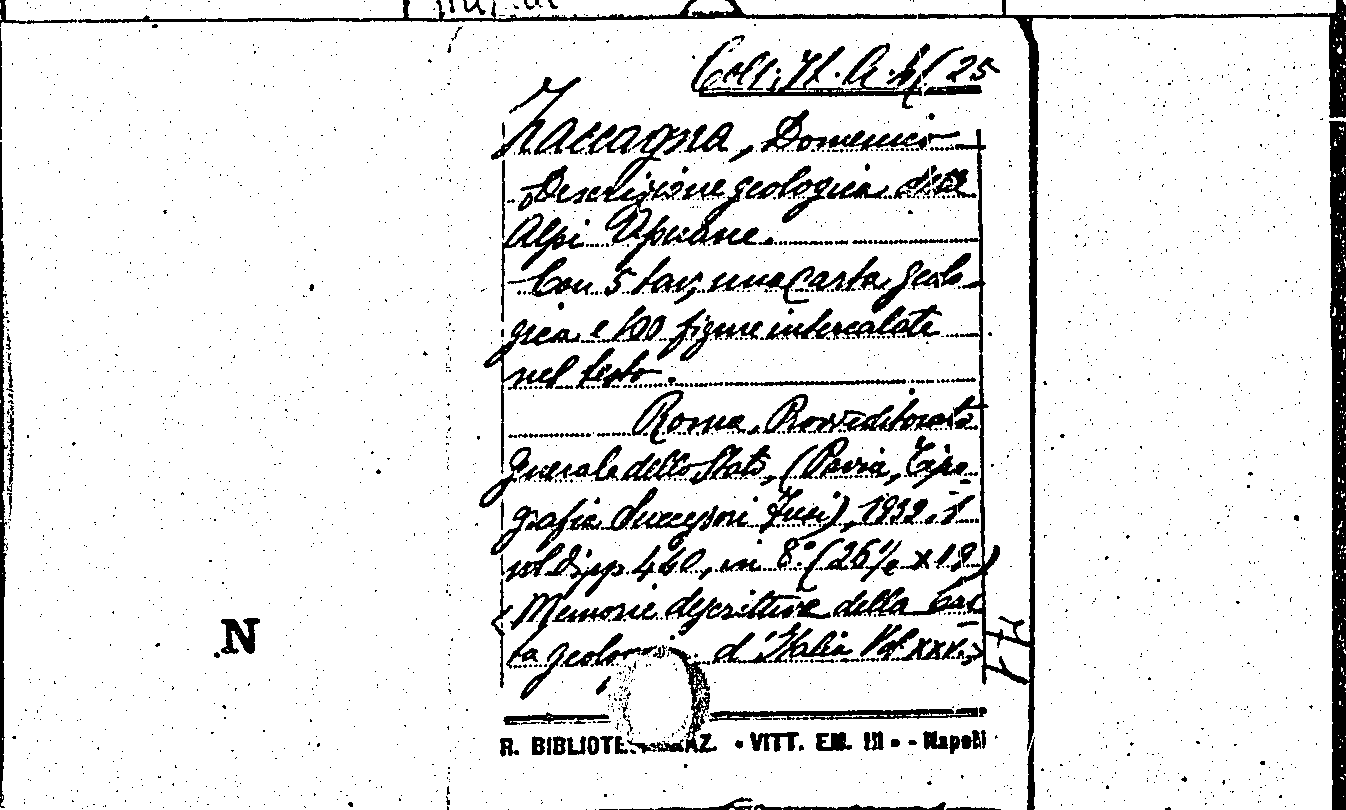 Coll. It. A. 4/(25
Zaccagna, Domenico
Descrizione geologica delle
Alpi Apuane.
Con 5 tav, una carta geolo-
gica e 100 figure intercalate
nel testo.
Roma, Provveditorato
Generale dello Stato, (Pavia, Tipo-
grafia Successori Fusi), 1932. 1
vol di pp 440, in 8.° (26½ x 19)
(Memorie descrittive della Car-
ta geologica d'Italia Vol. XXV.)
N
R. BIBLIOTE NAZ. • VITT. EM. III • - Napoli